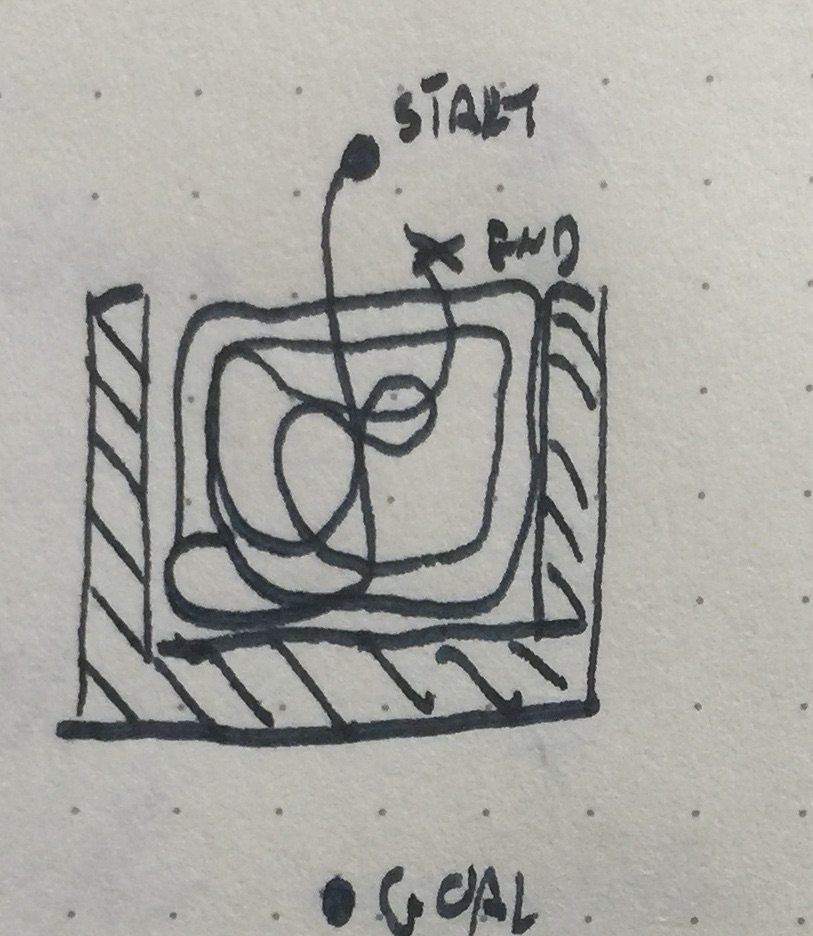 START
END
GOAL